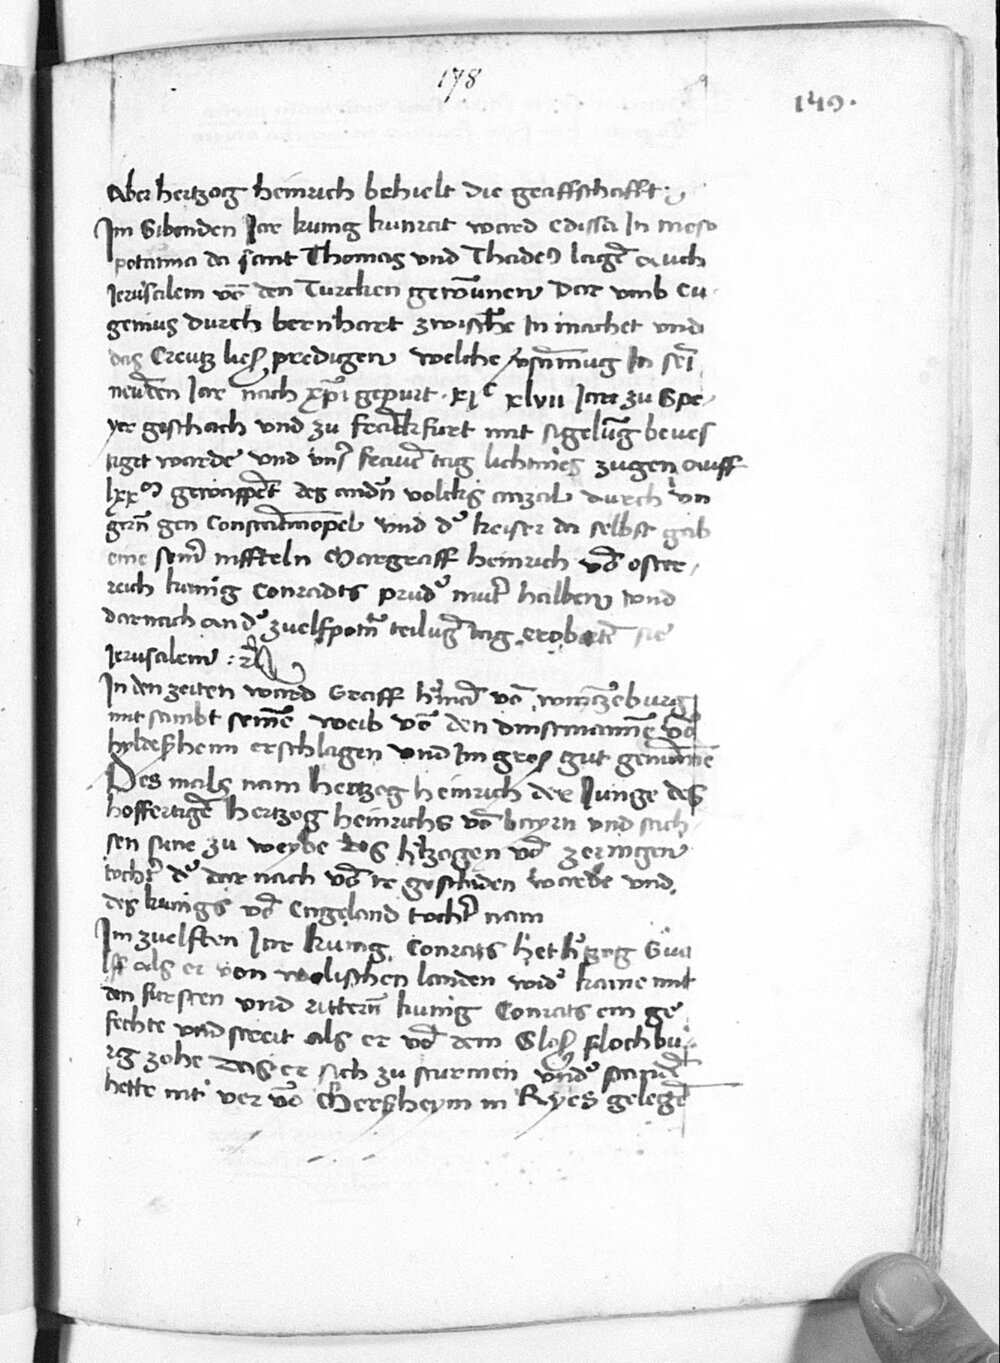 178
149.
Aber hertzog heinrich behielt die graffschafft.
Im Sibenden Jar kunig kunrat ward edissa In meso
potamia da sant Thomas und Thadeꝰ lagē auch
Jerusalem vō den Turcken gewūnen Dar vmb eu
genius durch bernhart zwischē In machet vnd
das Creutz ließ predigen welche In sei
neūden Jare nach xp̄i gepurt . xjᶜ xlvii Jare zu Spe
yer geschach vnd zu frāckfurt mit sigelūg beues
tiget warde vnd vnsʳ frawē tag lichtmes zugen auff
lxxᵐ gewappēt des andn̄ volcks anzal durch vn
gern̄ gen Constātinopel vnd dʾ keiser da selbst gab
eine seinʳ nifteln Margraff heinrich vō oster
reich kunig Conradts prudʾ mutʳ halben vnd
darnach an dʾ zwelfpotn̄ teilūg tag erobertē sie
Jerusalem :
In den zeiten ward Graff hʾmā vō wintzēburg
mit sambt seinē weib vō den dinstmannē vō
hyldeßheim erschlagen vnd Im groß gut genūmē
Des mals nam hertzog heinrich der Junge des
hoffertigē hertzog heinrichs vō bayrn vnd sach
sen sune zu weybe des hʾtzogen vō zeringen
tochtʳ dʾ dar nach vō Ir geschiden warde vnd
des kunigs vō Engeland tochtʳ nam
Im zwelften Jar kunig Conrats het hʾtzog Gwe
lff als er von welischen landen widʾ kame mit
den fursten vnd rittern̄ kunig Conrats ein ge
fechte vnd streit als er vō dem Sloß flochbu
rg zohe Das er sich zu sturmen
hette mit vor vō herßheym in Ryes gelegē